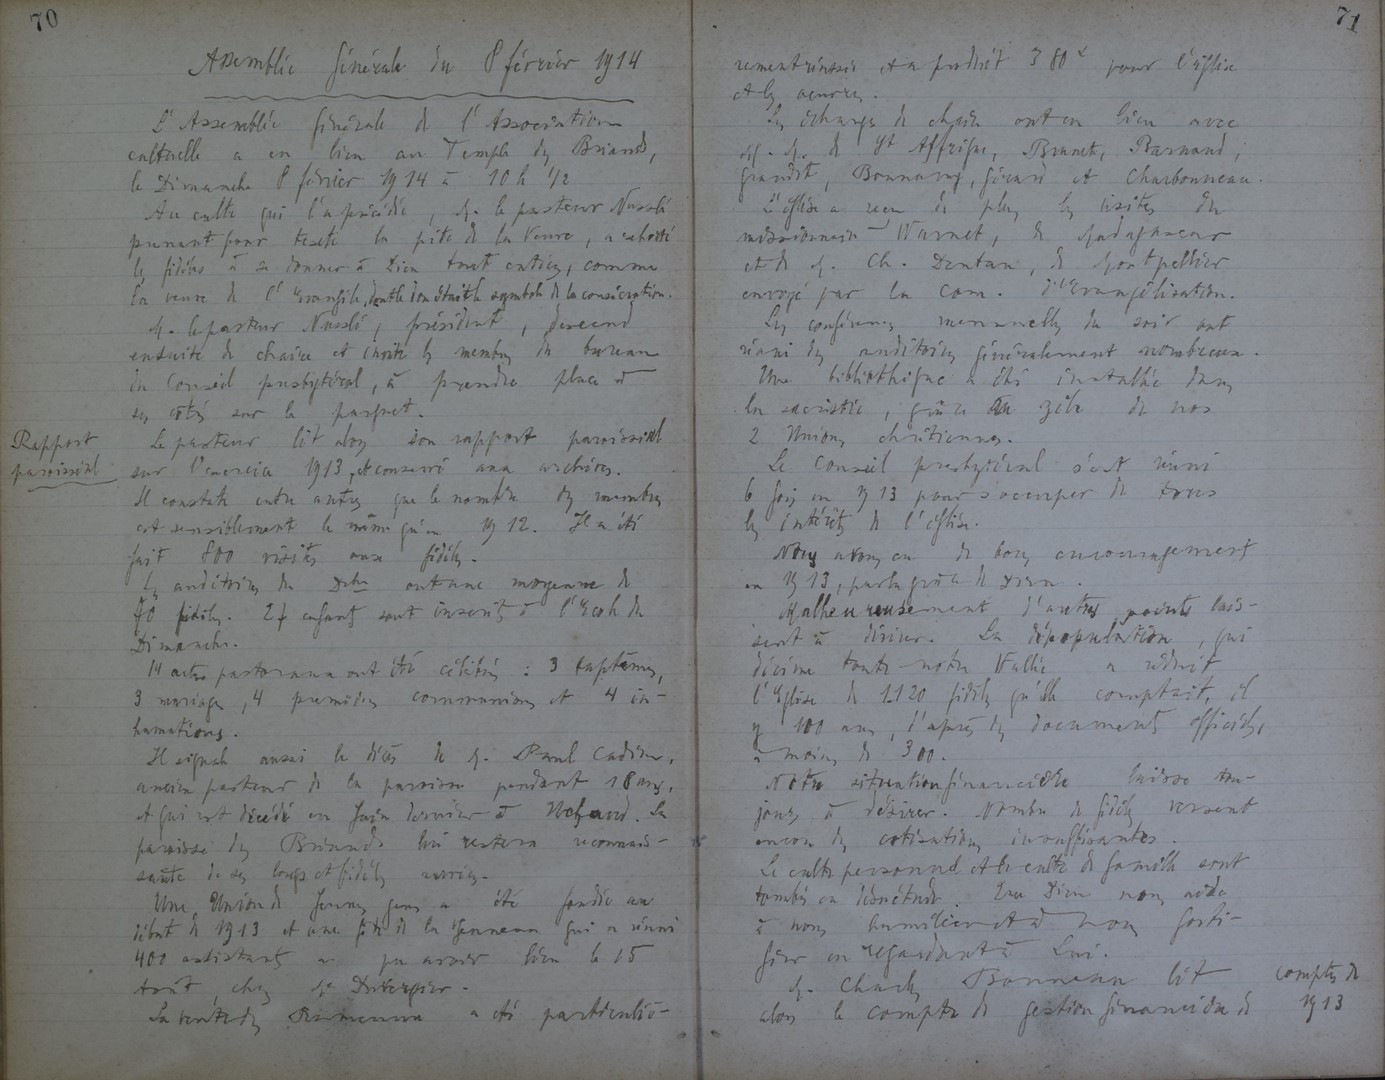 70
Assemblée Générale du 8 février 1914
L'Assemblée Générale de l'Association
cultuelle a eu lieu au Temple des Briands,
le Dimanche 8 février 1914 à 10 h 1/2
Au culte qui l'a précédée, M. le pasteur Nusslé
prenant pour texte la pite de la Veuve, a exhorté
les fidèles à se donner à Dieu tout entiers, comme
la veuve de l'Evangile, dont le don était le symbole de la consécration.
M. le pasteur Nusslé, président, descend
ensuite de chaire et invite les membres du bureau
du Conseil presbytéral, à prendre place à
ses côtés sur le parquet.
Rapport
paroissial
Le pasteur lit alors son rapport paroissial
sur l'exercice 1913, et conservé aux archives.
Il constate entre autres que le nombre des membres
est sensiblement le même qu'en 1912. Il a été
fait 800 visites aux fidèles.
Les auditoires du Dche ont une moyenne de
70 fidèles. 27 enfants sont inscrits à l'Ecole du
Dimanche.
14 actes pastoraux ont été célébrés : 3 baptêmes,
3 mariages, 4 premières communions et 4 in-
humations.
Il signale aussi le décès de M. Paul Cadier,
ancien pasteur de la paroisse pendant 18 ans,
et qui est décédé en Juin dernier à . La
paroisse des Briands lui restera reconnais-
sante de ses longs et fidèles services.
Une Union de Jeunes gens a été fondée au
début de 1913 et une fête de la Jeunesse qui a réuni
400 assistants a pu avoir lieu le 15
août, chez M. Duvergier.
La vente des a été particuliè-
71
rement réussie et a produit 380 f pour l'Eglise
et les œuvres.
Les échanges de chaire ont eu lieu avec
M. M. de St Affrique, Brunet, Barnaud,
Grandet, , Gérard et Charbonneau.
L'église a reçu de plus les visites du
missionnaire Warnet, de Madagascar
et de M. Ch. Dentan, de Montpellier
envoyé par la Com. d'Evangélisation.
Les conférences mensuelles du soir ont
réuni des auditoires généralement nombreux.
Une bibliothèque a été installée dans
la sacristie, grâce au zèle de nos
2 Unions chrétiennes.
Le Conseil presbytéral s'est réuni
6 fois en 1913 pour s'occuper de tous
les intérêts de l'église.
Nous avons eu de bons encouragements
en 1913, par la grâce de Dieu.
Malheureusement d'autres points lais-
sent à désirer. La dépopulation, qui
décime toute notre Vallée a réduit
l'Eglise de 1.120 fidèles qu'elle comptait, il
y 100 ans, d'après des documents officiels,
à moins de 300.
Notre situation financière laisse tou-
jours à désirer. Nombre de fidèles versent
encore des cotisations insuffisantes.
Le culte personnel et le culte de famille sont
tombés en désuétude. Que Dieu nous aide
à nous humilier et à nous forti-
fier en regardant à Lui.
M. Charles Bonneau lit
alors le compte de gestion financière de
comptes de
1913